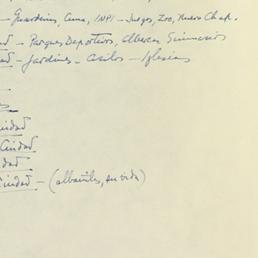 - Guarderías, Cuna, INPI - Juegos, Zoo, Nuevo Chap.
dad - Parques Deportivos, Albercas Gimnasios
dad - Jardines - Asilos - Iglesias
iudad
Ciudad
dad
Ciudad - (albañiles, su vida)